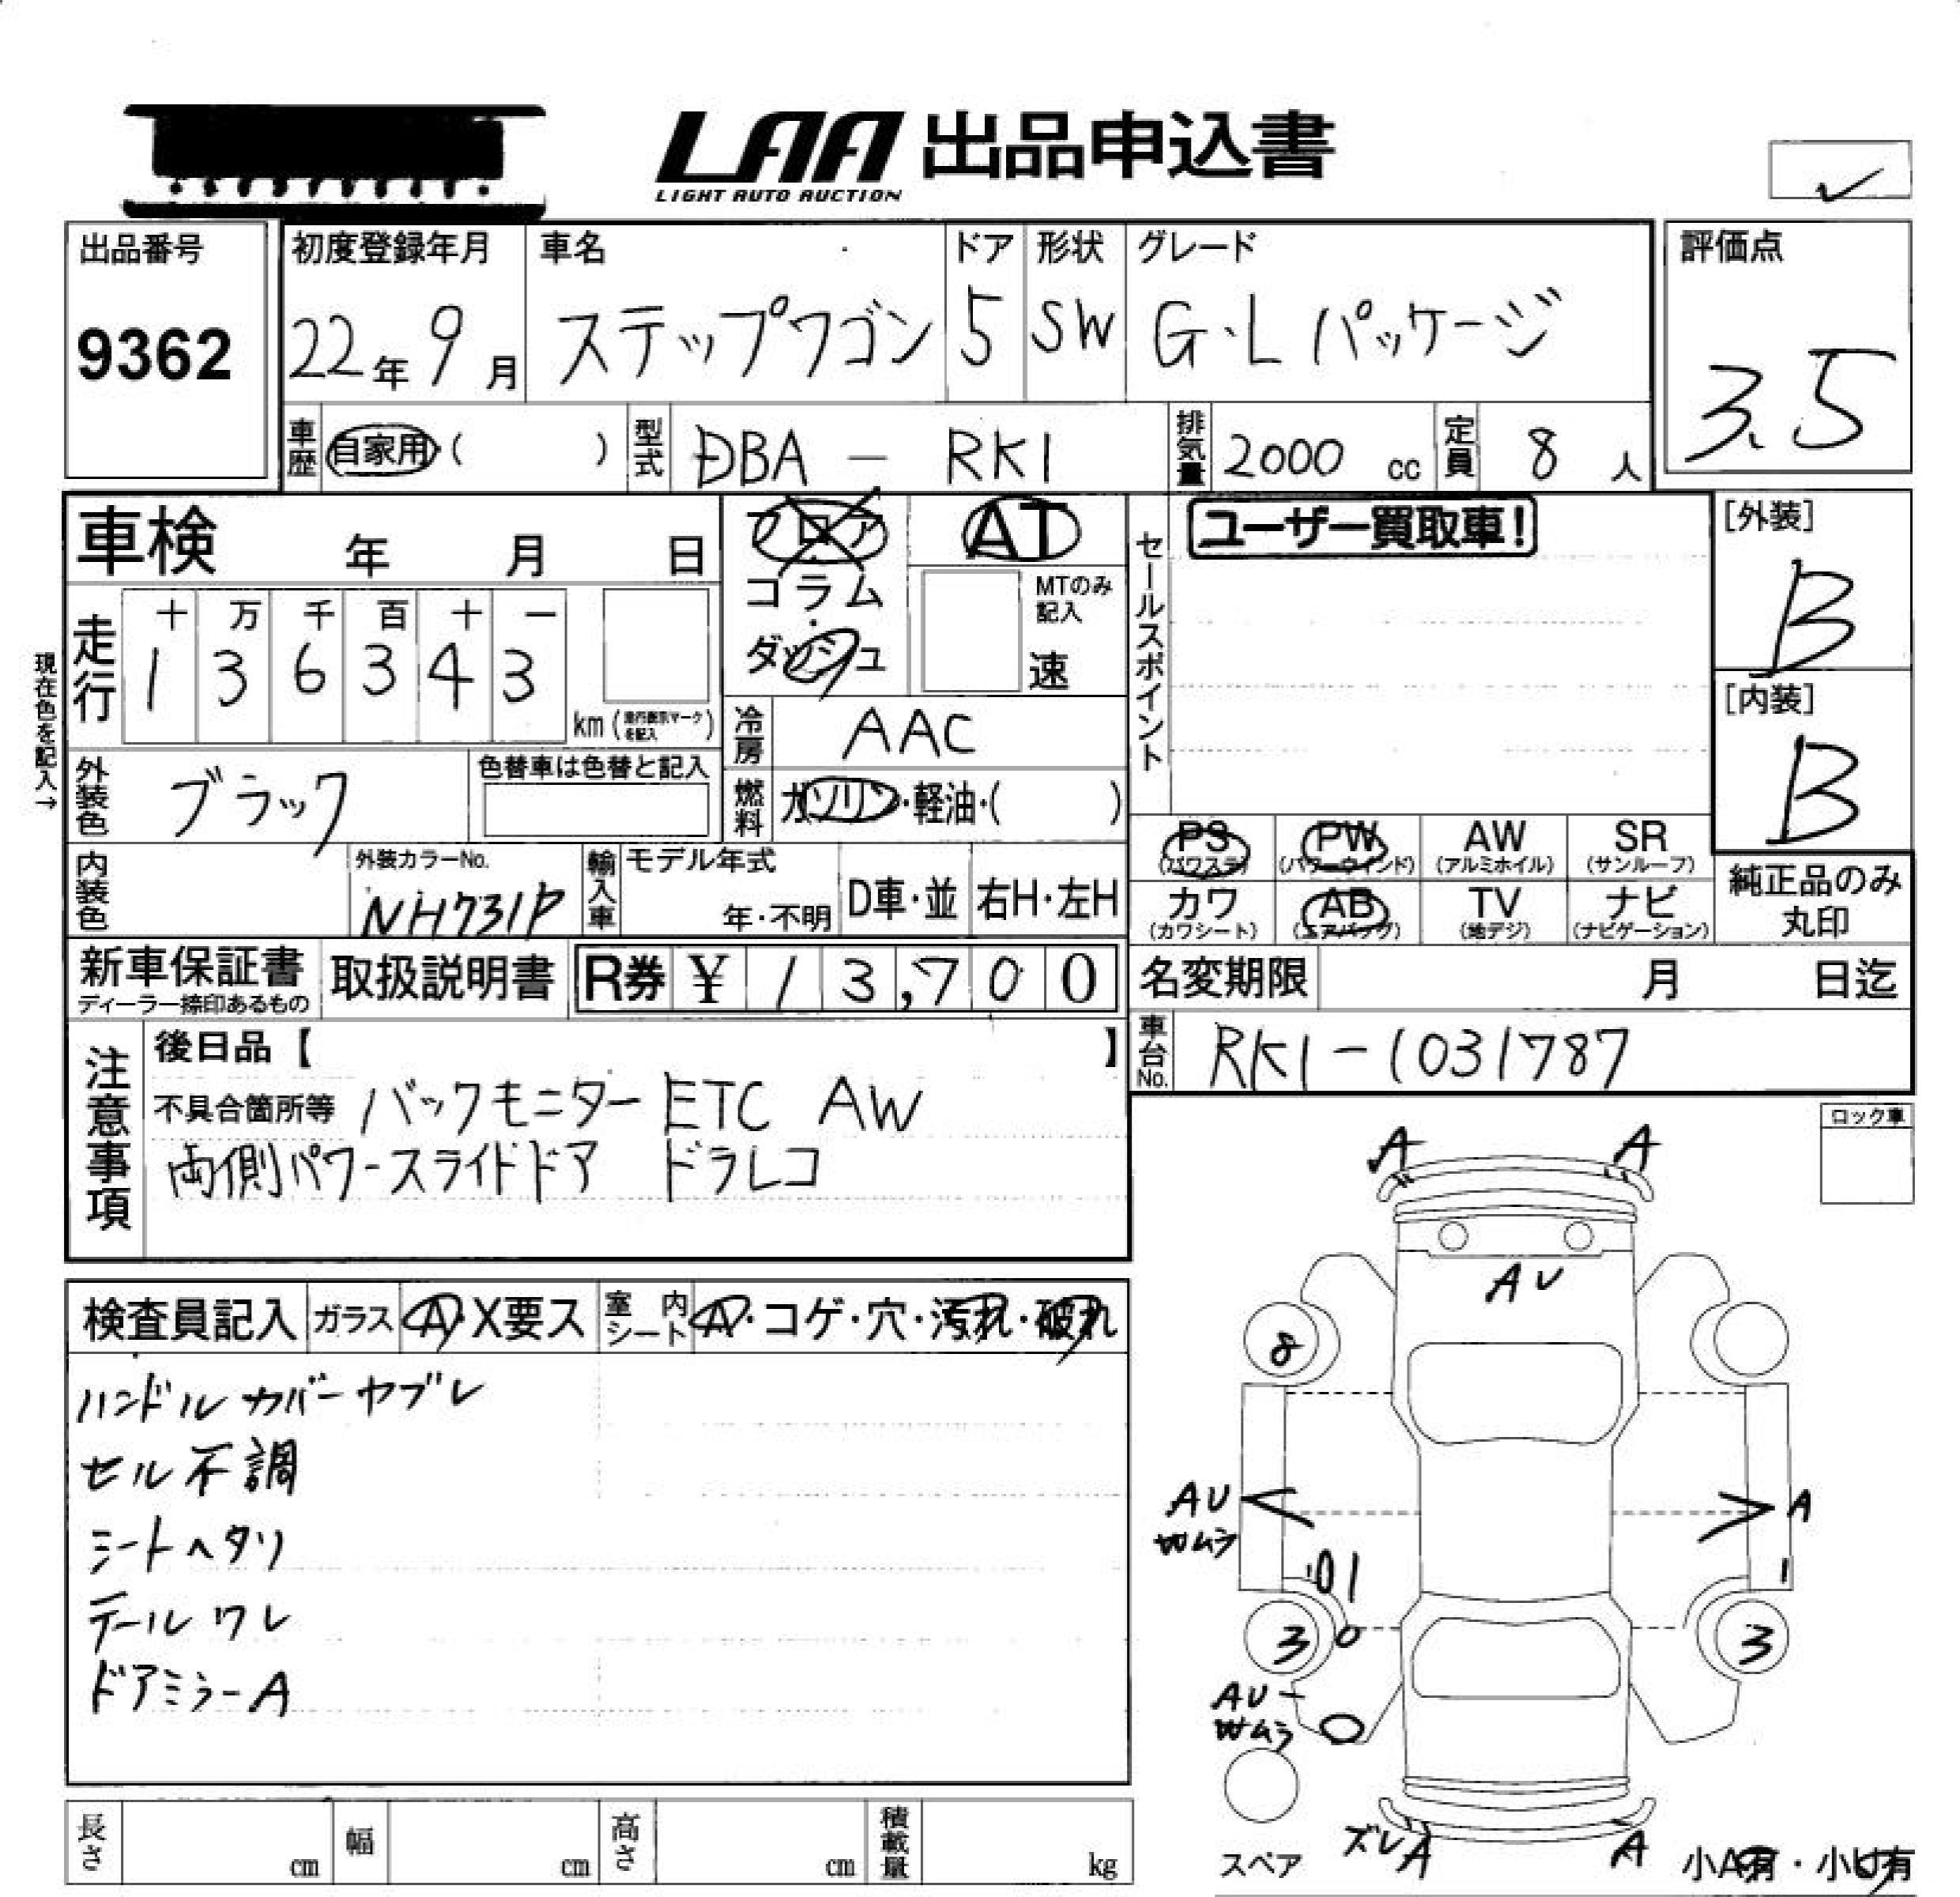 LAA 出品申込書
LIGHT AUTO AUCTION
出品番号
9362
初度登録年月
22年 9月
車名
ステップワゴン
ドア
5
形状
SW
グレード
G・Lパッケージ
評価点
3.5
車歴 自家用・( )
型式 DBA - RK1
排気量 2000 cc
定員 8 人
車検 年 月 日
走行
十 万 千 百 十 一
1 3 6 3 4 3
km (走行表示マークを記入)
現在色を記入→
フロア
コラム
ダッシュ
AT
MTのみ記入
速
冷房 AAC
燃料 ガソリン・軽油・( )
外装色 ブラック
色替車は色替と記入
内装色
外装カラーNo.
NH731P
輸入車
モデル年式
年・不明
D車・並
右H・左H
セールスポイント
ユーザー買取車!
[外装]
B
[内装]
B
PS (パワステ)
PW (パワーウインド)
AW (アルミホイル)
SR (サンルーフ)
カワ (カワシート)
AB (エアバッグ)
TV (地デジ)
ナビ (ナビゲーション)
純正品のみ
丸印
新車保証書
ディーラー捺印あるもの
取扱説明書
R券 ¥ 13,700
名変期限 月 日迄
車台No. RK1-1031787
注意事項
後日品【 】
不具合箇所等 バックモニター ETC AW
両側パワースライドドア ドラレコ
ロック車
検査員記入
ガラス A・X要ス
室内シート A・コゲ・穴・汚れ・破れ
ハンドルカバーヤブレ
セル不調
シートヘタリ
テールワレ
ドアミラーA
A A
AU
8
AU
A
3
3
AU
ズレA
A
スペア
小A有・小U有
長さ cm
幅 cm
高さ cm
積載量 kg